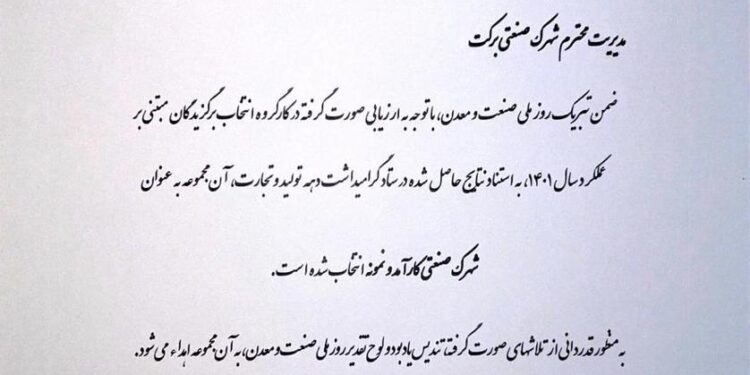 مدیریت محترم شهرک صنعتی برکت
ضمن تبریک روز ملی صنعت و معدن، با توجه به ارزیابی صورت گرفته در کارگروه انتخاب برگزیدگان مبتنی بر
عملکرد سال ۱۴۰۱، به استناد نتایج حاصل شده در ستاد گرامیداشت دهه تولید و تجارت، آن مجموعه به عنوان
شهرک صنعتی کارآمد و نمونه انتخاب شده است.
به منظور قدردانی از تلاشهای صورت گرفته، تندیس یادبود و لوح تقدیر روز ملی صنعت و معدن، به آن مجموعه اهداء می شود.